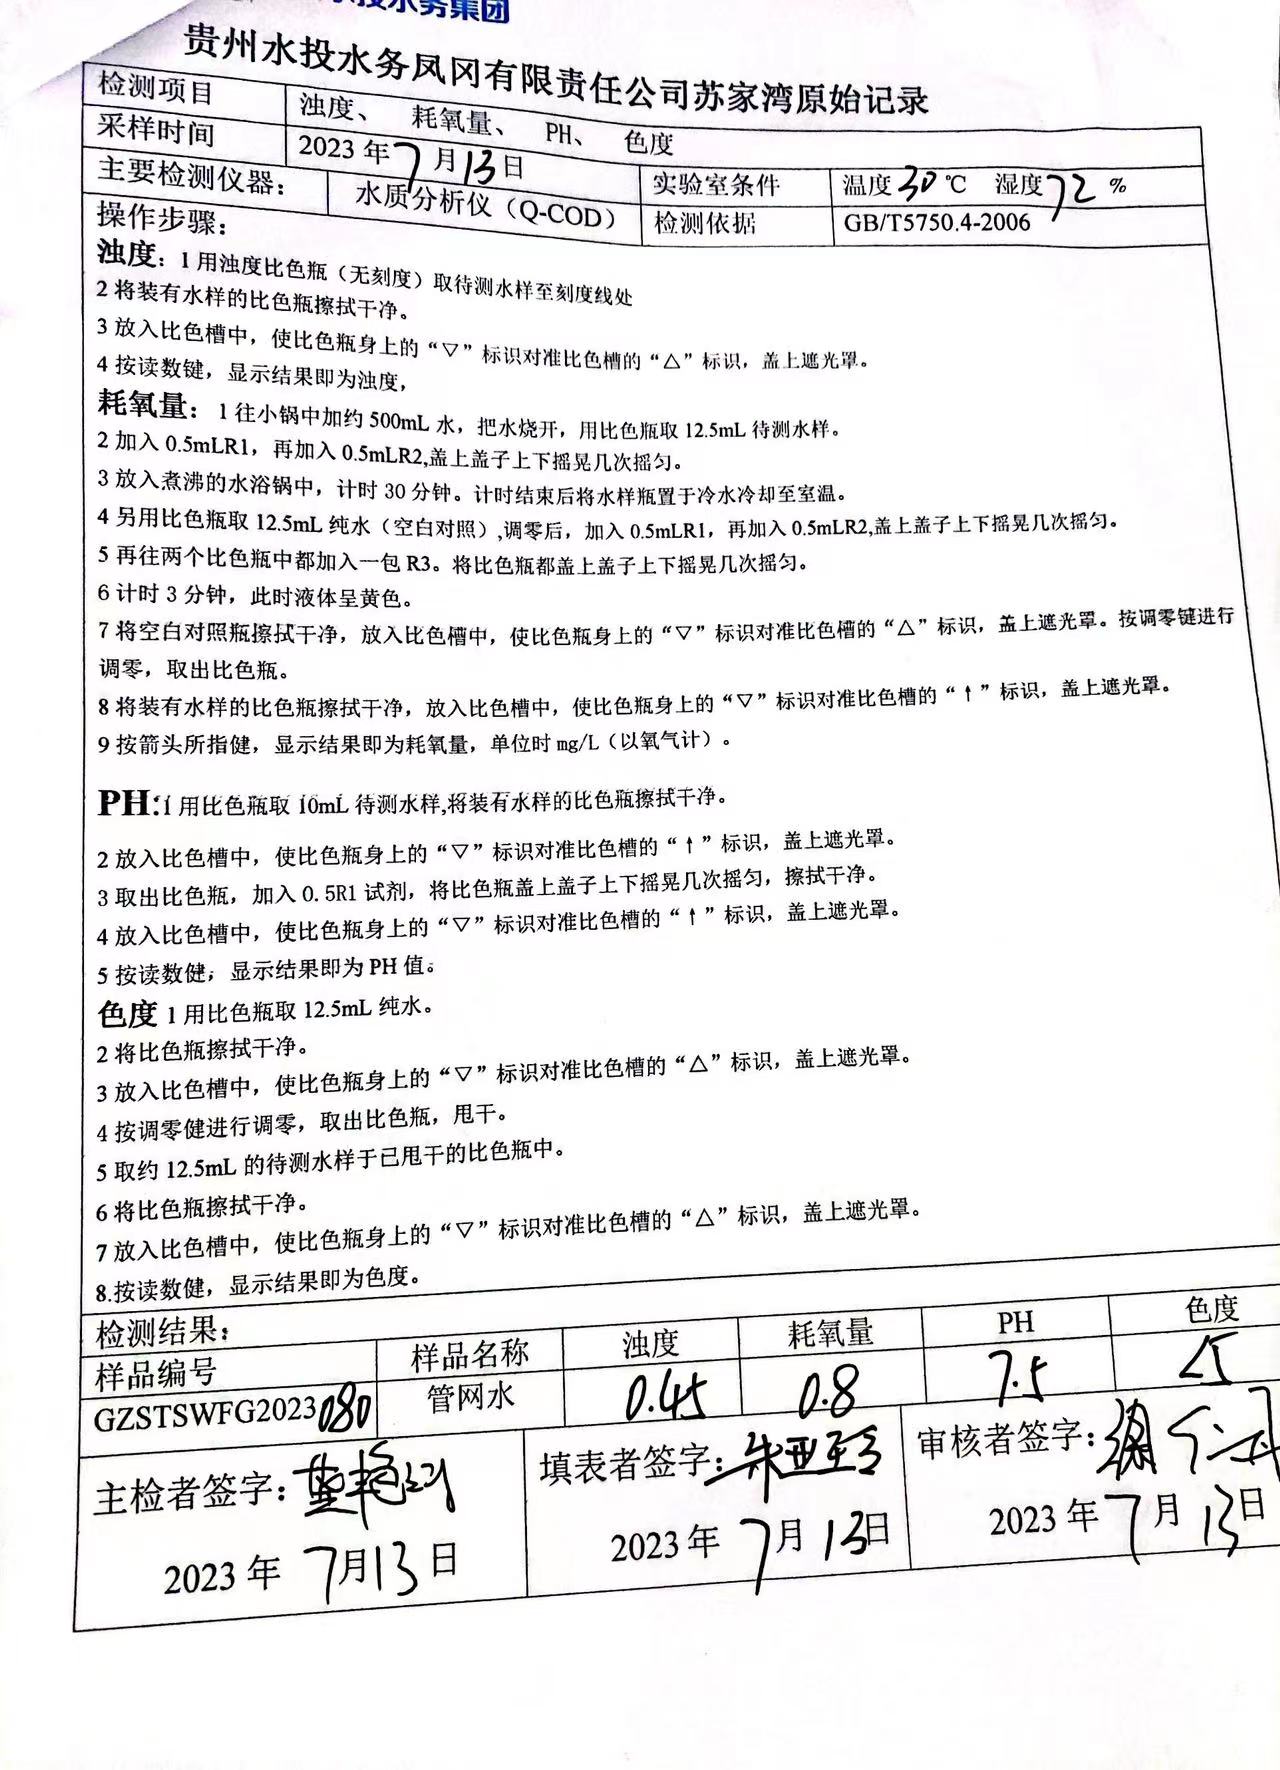 水投水务集团
贵州水投水务凤冈有限责任公司苏家湾原始记录
检测项目 浊度、 耗氧量、 PH、 色度
采样时间 2023年7月13日
主要检测仪器： 水质分析仪（Q-COD） 实验室条件 温度30℃ 湿度72%
检测依据 GB/T5750.4-2006
操作步骤：
浊度：1用浊度比色瓶（无刻度）取待测水样至刻度线处
2将装有水样的比色瓶擦拭干净。
3放入比色槽中，使比色瓶身上的“▽”标识对准比色槽的“△”标识，盖上遮光罩。
4按读数键，显示结果即为浊度，
耗氧量：1往小锅中加约500mL水，把水烧开，用比色瓶取12.5mL待测水样。
2加入0.5mLR1，再加入0.5mLR2,盖上盖子上下摇晃几次摇匀。
3放入煮沸的水浴锅中，计时30分钟。计时结束后将水样瓶置于冷水冷却至室温。
4另用比色瓶取12.5mL纯水（空白对照）,调零后，加入0.5mLR1，再加入0.5mLR2,盖上盖子上下摇晃几次摇匀。
5再往两个比色瓶中都加入一包R3。将比色瓶都盖上盖子上下摇晃几次摇匀。
6计时3分钟，此时液体呈黄色。
7将空白对照瓶擦拭干净，放入比色槽中，使比色瓶身上的“▽”标识对准比色槽的“△”标识，盖上遮光罩。按调零键进行
调零，取出比色瓶。
8将装有水样的比色瓶擦拭干净，放入比色槽中，使比色瓶身上的“▽”标识对准比色槽的“↑”标识，盖上遮光罩。
9按箭头所指健，显示结果即为耗氧量，单位时mg/L（以氧气计）。
PH:1用比色瓶取10mL待测水样,将装有水样的比色瓶擦拭干净。
2放入比色槽中，使比色瓶身上的“▽”标识对准比色槽的“↑”标识，盖上遮光罩。
3取出比色瓶，加入0.5R1试剂，将比色瓶盖上盖子上下摇晃几次摇匀，擦拭干净。
4放入比色槽中，使比色瓶身上的“▽”标识对准比色槽的“↑”标识，盖上遮光罩。
5按读数健；显示结果即为PH值。
色度1用比色瓶取12.5mL纯水。
2将比色瓶擦拭干净。
3放入比色槽中，使比色瓶身上的“▽”标识对准比色槽的“△”标识，盖上遮光罩。
4按调零健进行调零，取出比色瓶，甩干。
5取约12.5mL的待测水样于已甩干的比色瓶中。
6将比色瓶擦拭干净。
7放入比色槽中，使比色瓶身上的“▽”标识对准比色槽的“△”标识，盖上遮光罩。
8.按读数健，显示结果即为色度。
检测结果：
样品编号 样品名称 浊度 耗氧量 PH 色度
GZSTSWFG2023080 管网水 0.45 0.8 7.5 <5
主检者签字： 填表者签字： 审核者签字：
2023年7月13日 2023年7月13日 2023年7月13日